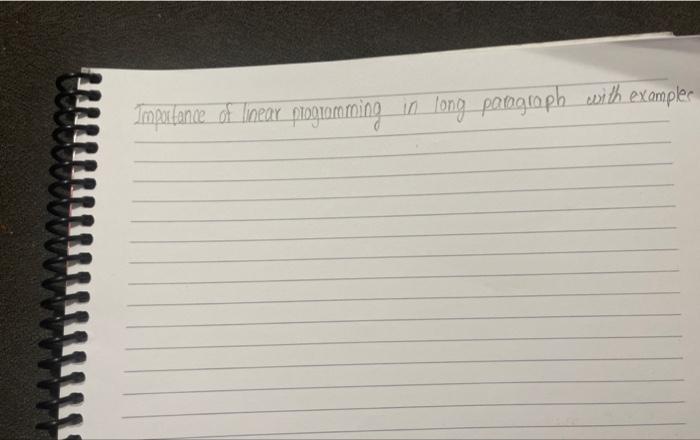 Importance of linear programming in long paragraph with examples